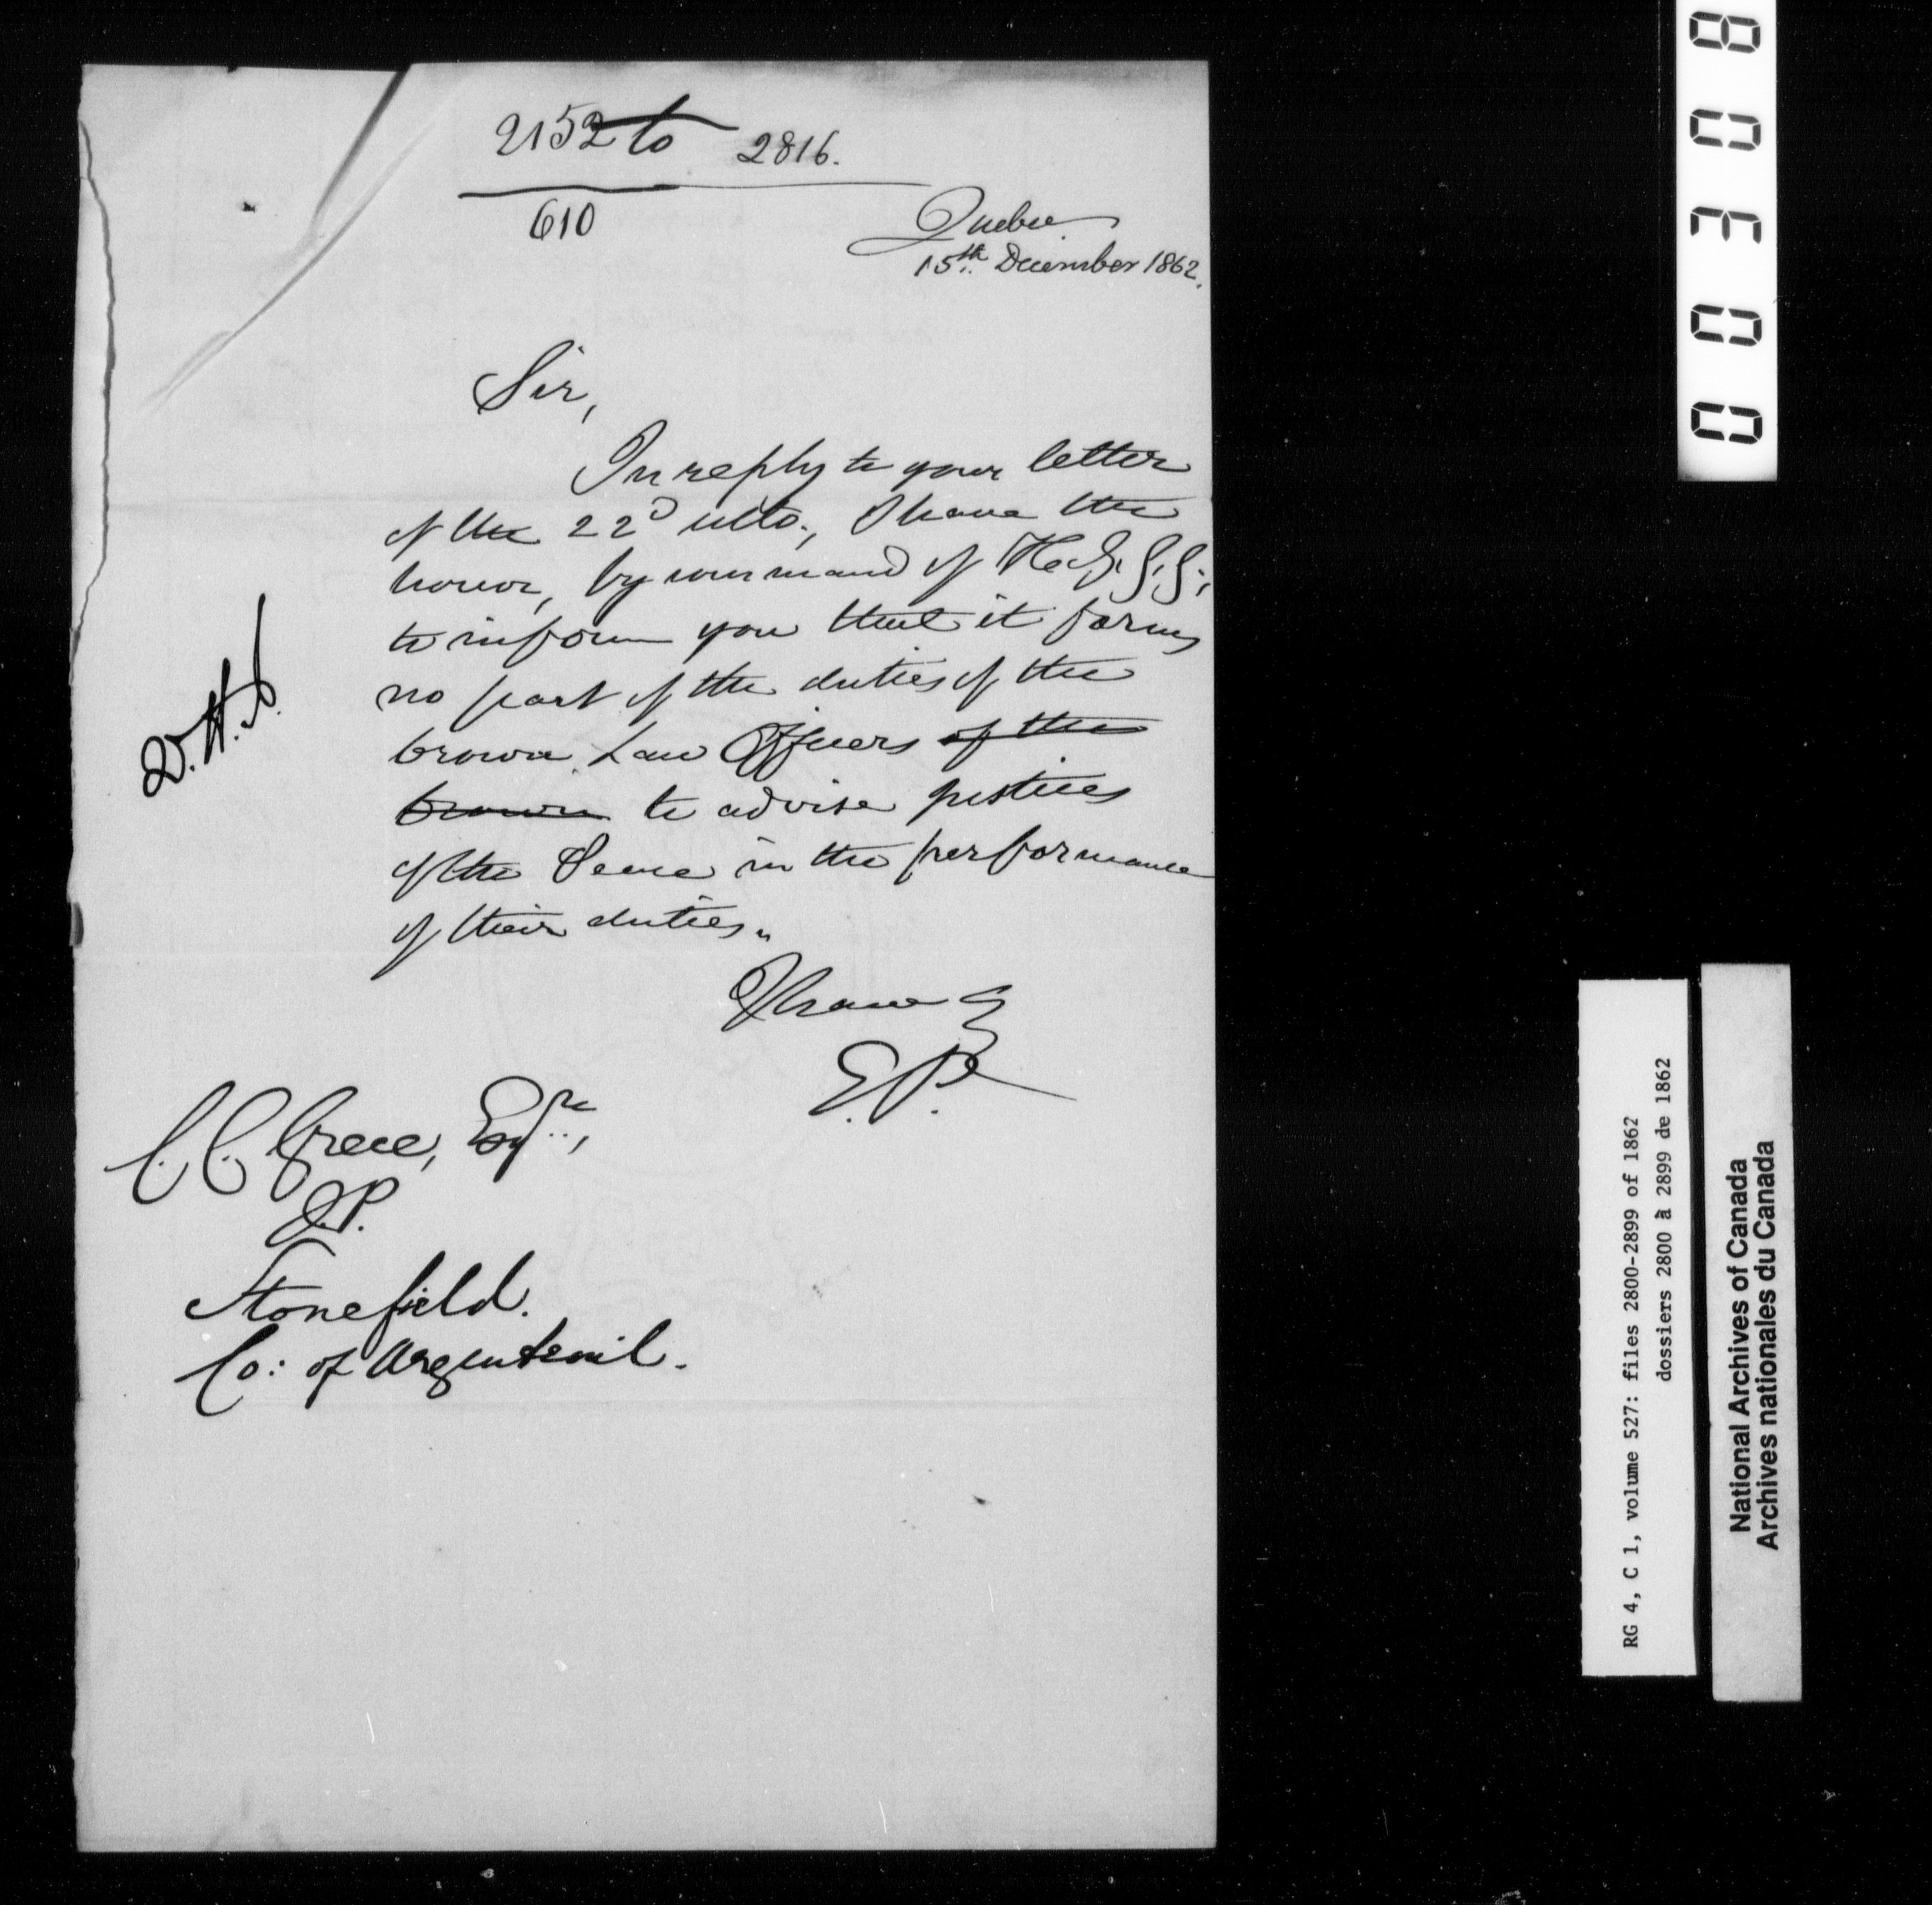 2152 to 2816.
610
Quebec
15th December 1862.
Sir,
In reply to your letter
of the 22d ulto., I have the
honor, by command of H. E. G. G.,
to inform you that it forms
no part of the duties of the
Crown Law Officers of the
Crown to advise justices
of the Peace in the performance
of their duties.
I have
E. P.
C. C. Grece, Esqre.,
J.P.
Stonefield.
Co: of Argenteuil.
00308
RG 4, C 1, volume 527: files 2800-2899 of 1862
dossiers 2800 à 2899 de 1862
National Archives of Canada
Archives nationales du Canada